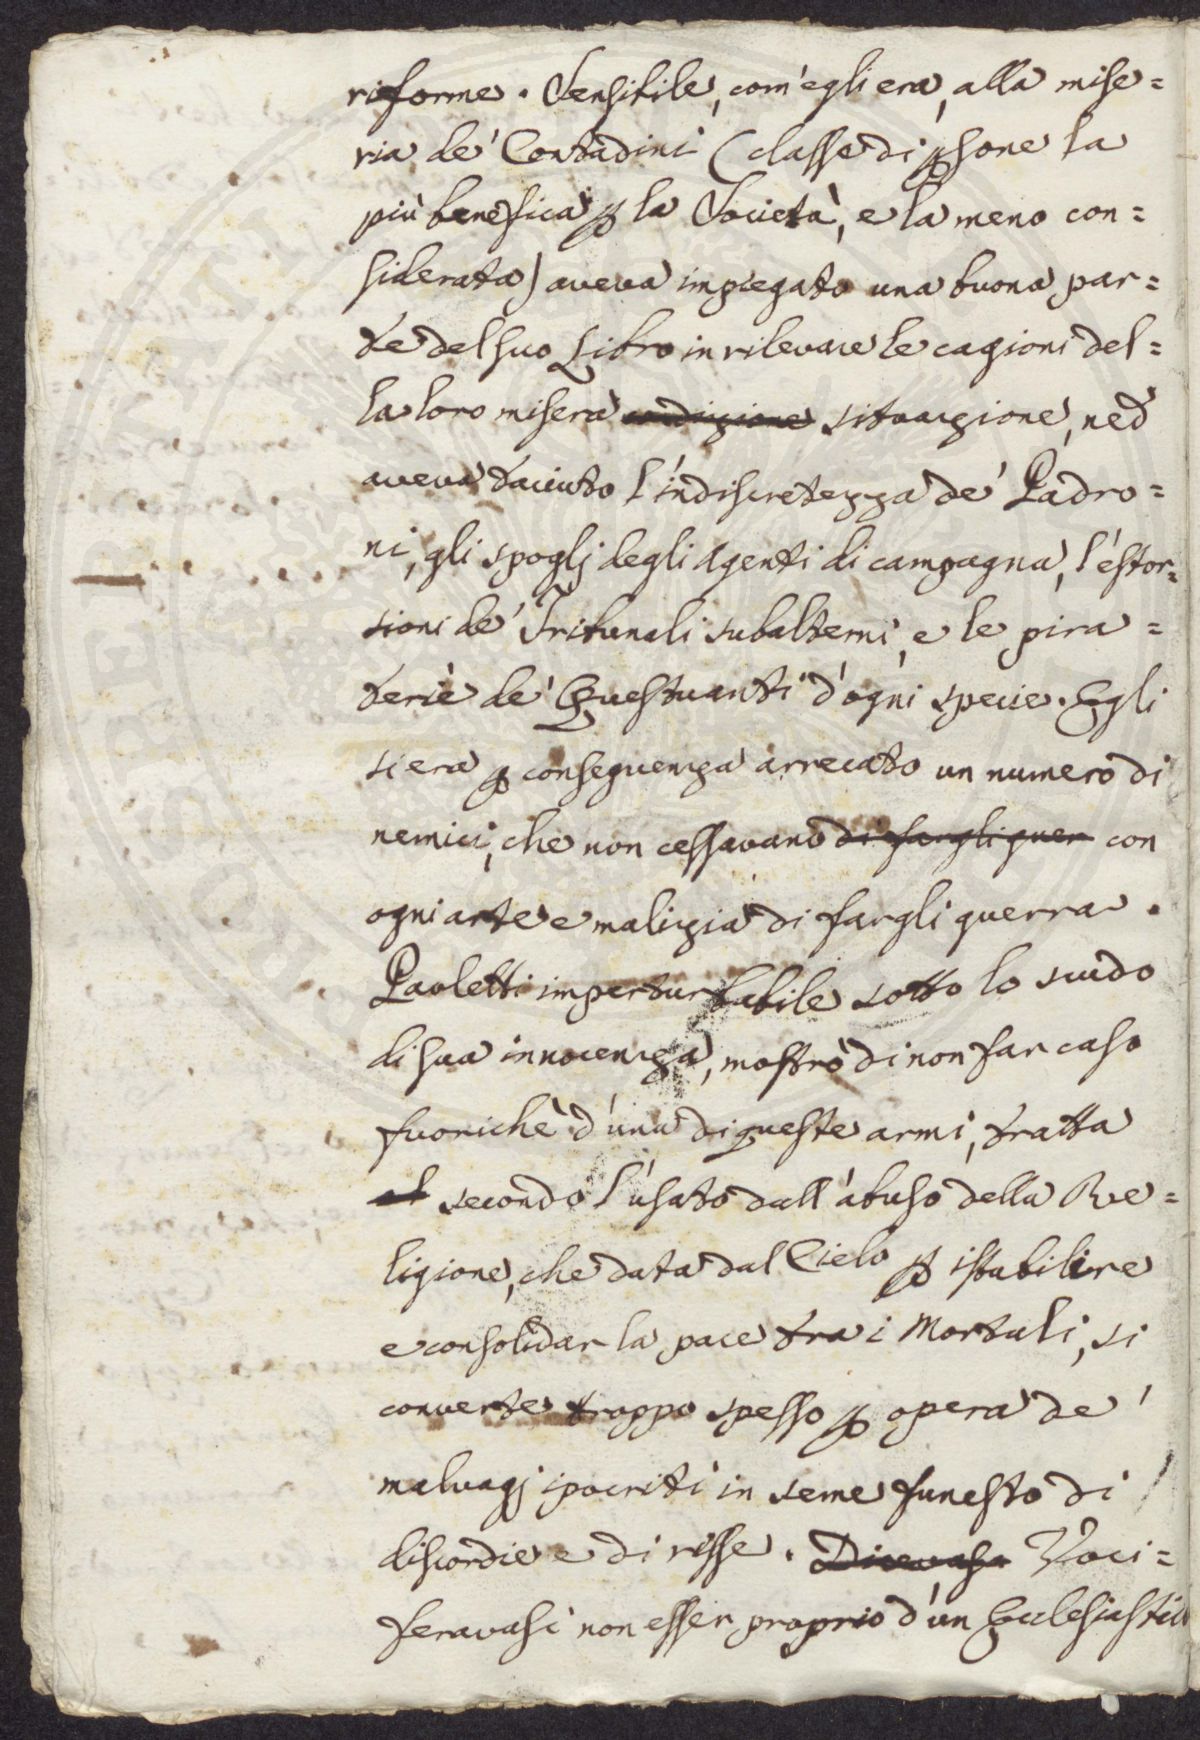 riforme. Sensibile, com'egli era, alla mise=
ria de' Contadini (classe di psone la
più benefica p la Società, e la meno con=
siderata) aveva impiegato una buona par=
te del suo Libro in rilevare le cagioni del=
la loro misera condizione situazione, ned
aveva taciuto l'indiscretezza de' Padro=
ni, gli spoglj degli Agenti di campagna, l'estor=
sioni de' Tribunali subalterni, e le pira=
terie de' Questuanti d'ogni specie. Egli
si era p conseguenza arrecato un numero di
nemici, che non cessavano di fargli guer con
ogni arte e malizia di fargli guerra.
Paoletti imperturbabile sotto lo scudo
di sua innocenza, mostrò di non far caso
fuorichè d'una di queste armi, tratta
secondo l'usato dall'abuso della Re=
ligione, che data dal Cielo p istabilire
e consolidar la pace tra i Mortali, si
converte troppo spesso p opera de'
malvagj ipocriti in seme funesto di
discordie e di risse. Dicevasi Voci=
feravasi non esser proprio d'un Ecclesiastico